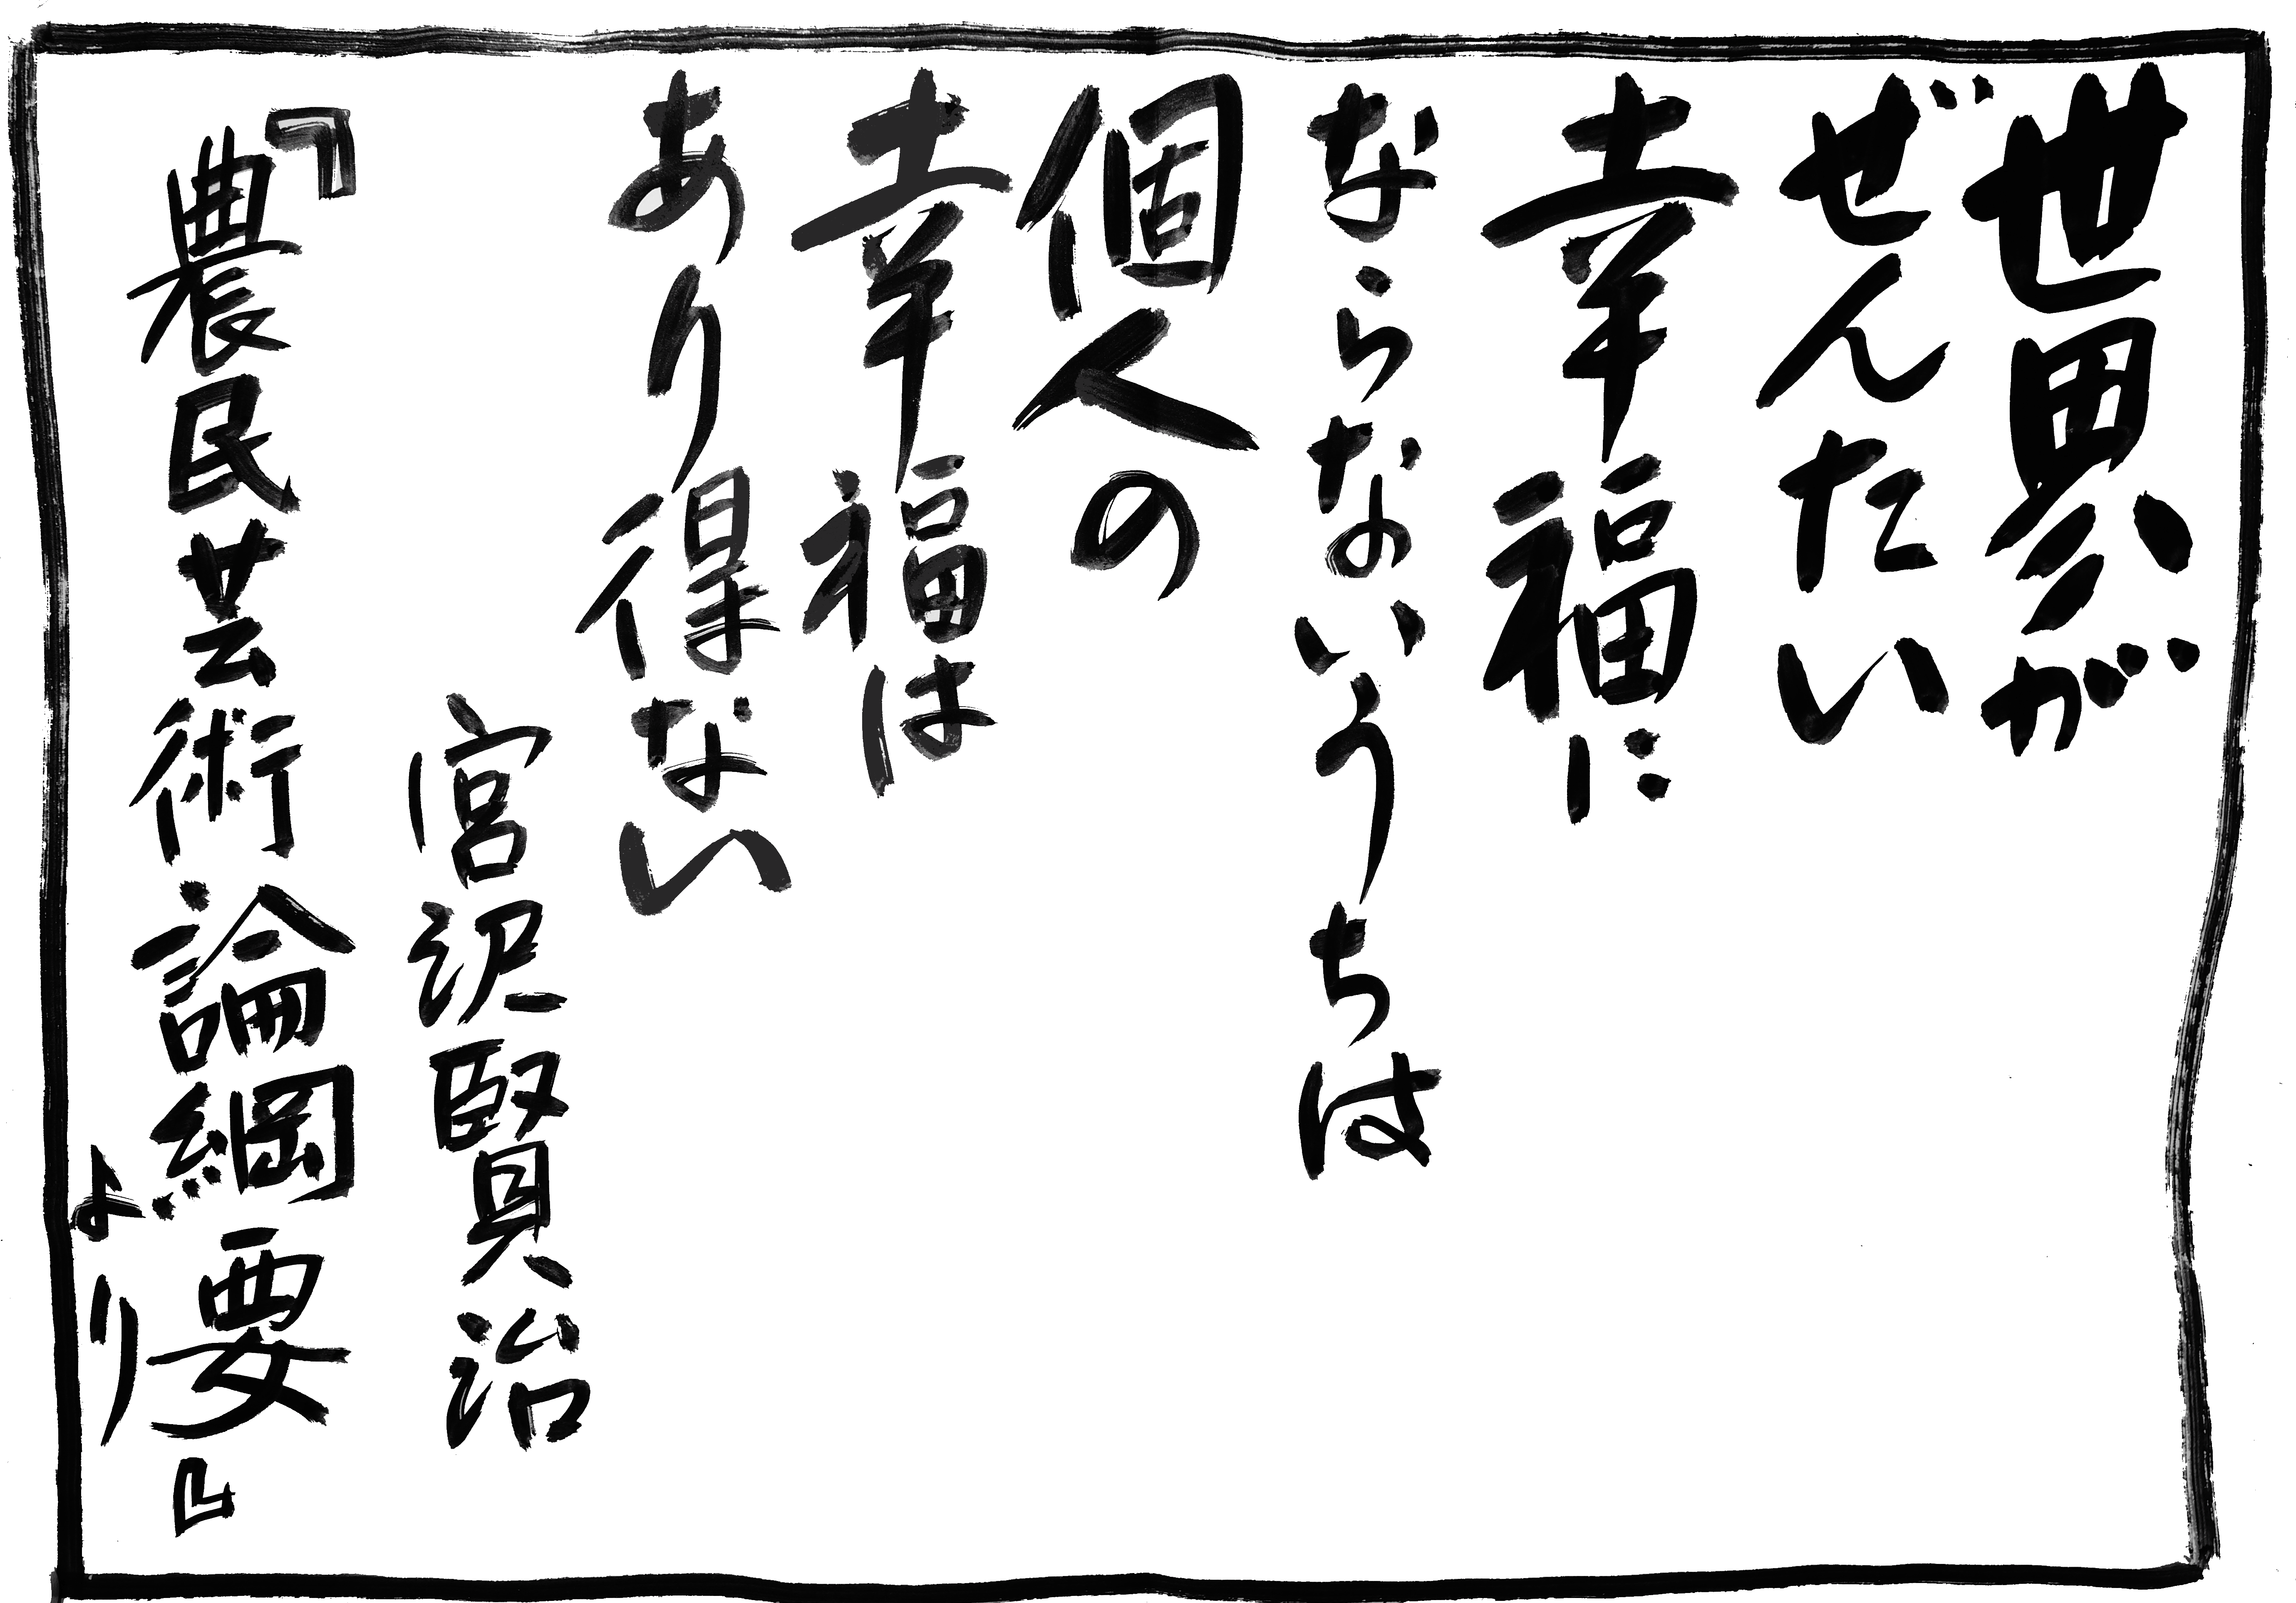 世界が
ぜんたい
幸福に
ならないうちは
個人の
幸福は
あり得ない
宮沢賢治
『農民芸術論綱要』
より